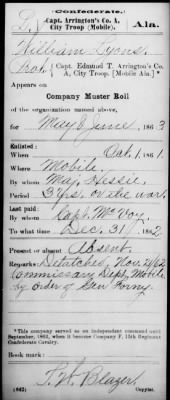 Confederate.
L. Capt. Arrington's Co. A, City Troop (Mobile). Ala.
William Lyons
Capt. Edmund T. Arrington's Co.
A, City Troop (Mobile Ala.)*
Appears on
Company Muster Roll
of the organization named above,
for May & June, 1863
Enlisted:
When Oct. 1, 1861.
Where Mobile
By whom Maj. Hessie
Period 3 yrs. or the war
Last paid:
By whom Capt. McVoy
To what time Dec. 31, 1862
Present or absent Absent
Remarks: Detached Nov. 24/62
Commissary Dept. Mobile
by order of Gen Forny
*This company served as an independent command until
September, 1863, when it became Company F, 15th Regiment
Confederate Cavalry.
Book mark:
T. W. Blazer
(642) Copyist.